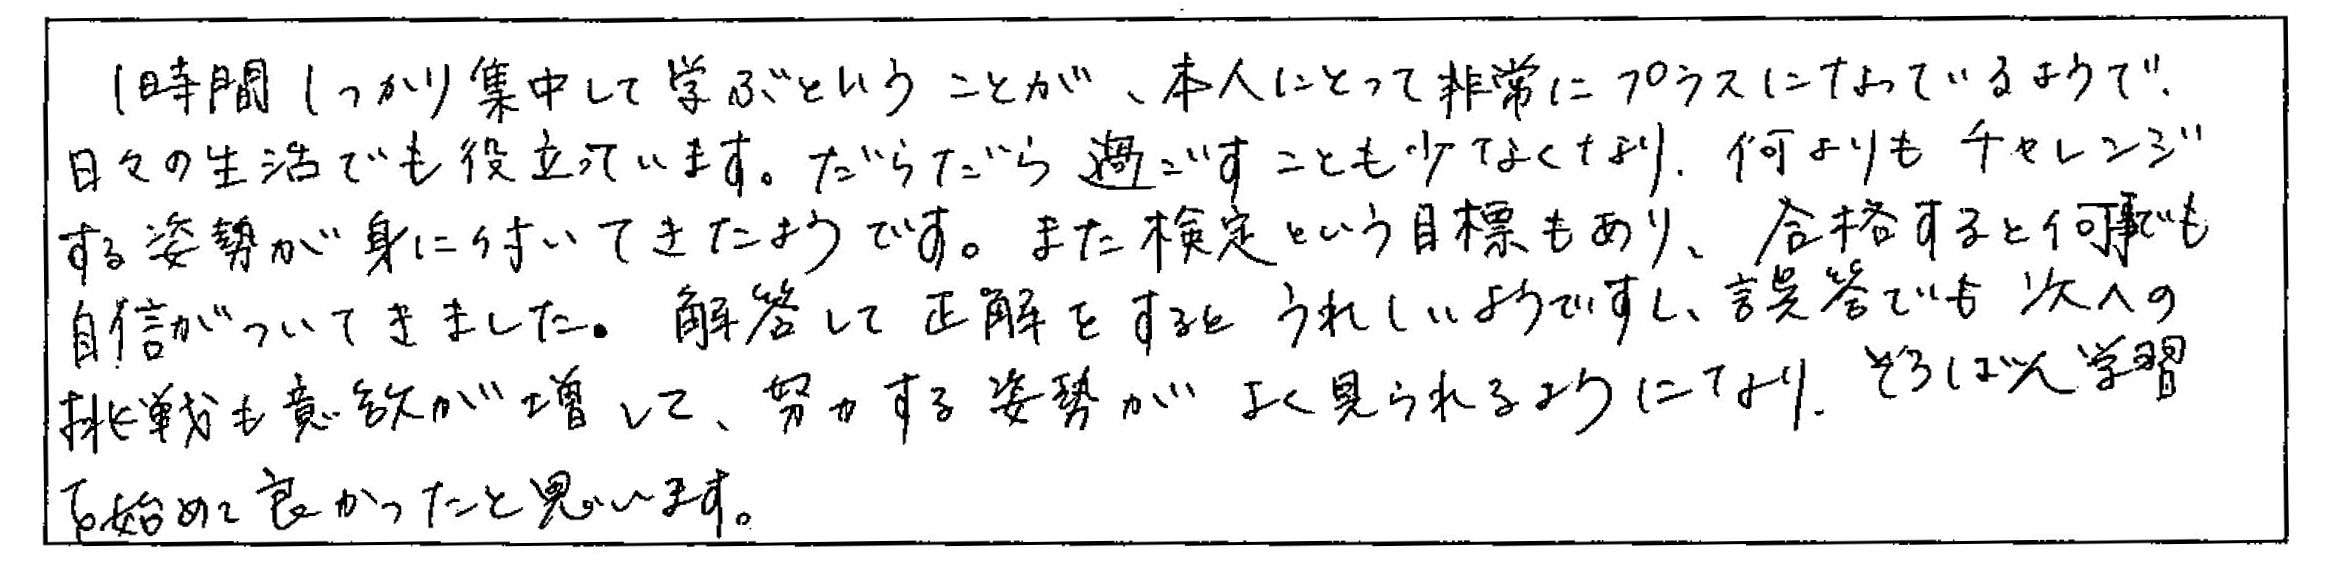 1時間しっかり集中して学ぶということが、本人にとって非常にプラスになっているようで、
日々の生活でも役立っています。だらだら過ごすことも少なくなり、何よりもチャレンジ
する姿勢が身に付いてきたようです。また検定という目標もあり、合格すると何事でも
自信がついてきました。解答して正解をするとうれしいようですし、誤答でも次への
挑戦も意欲が増して、努力する姿勢がよく見られるようになり、そろばん学習
を始めて良かったと思います。